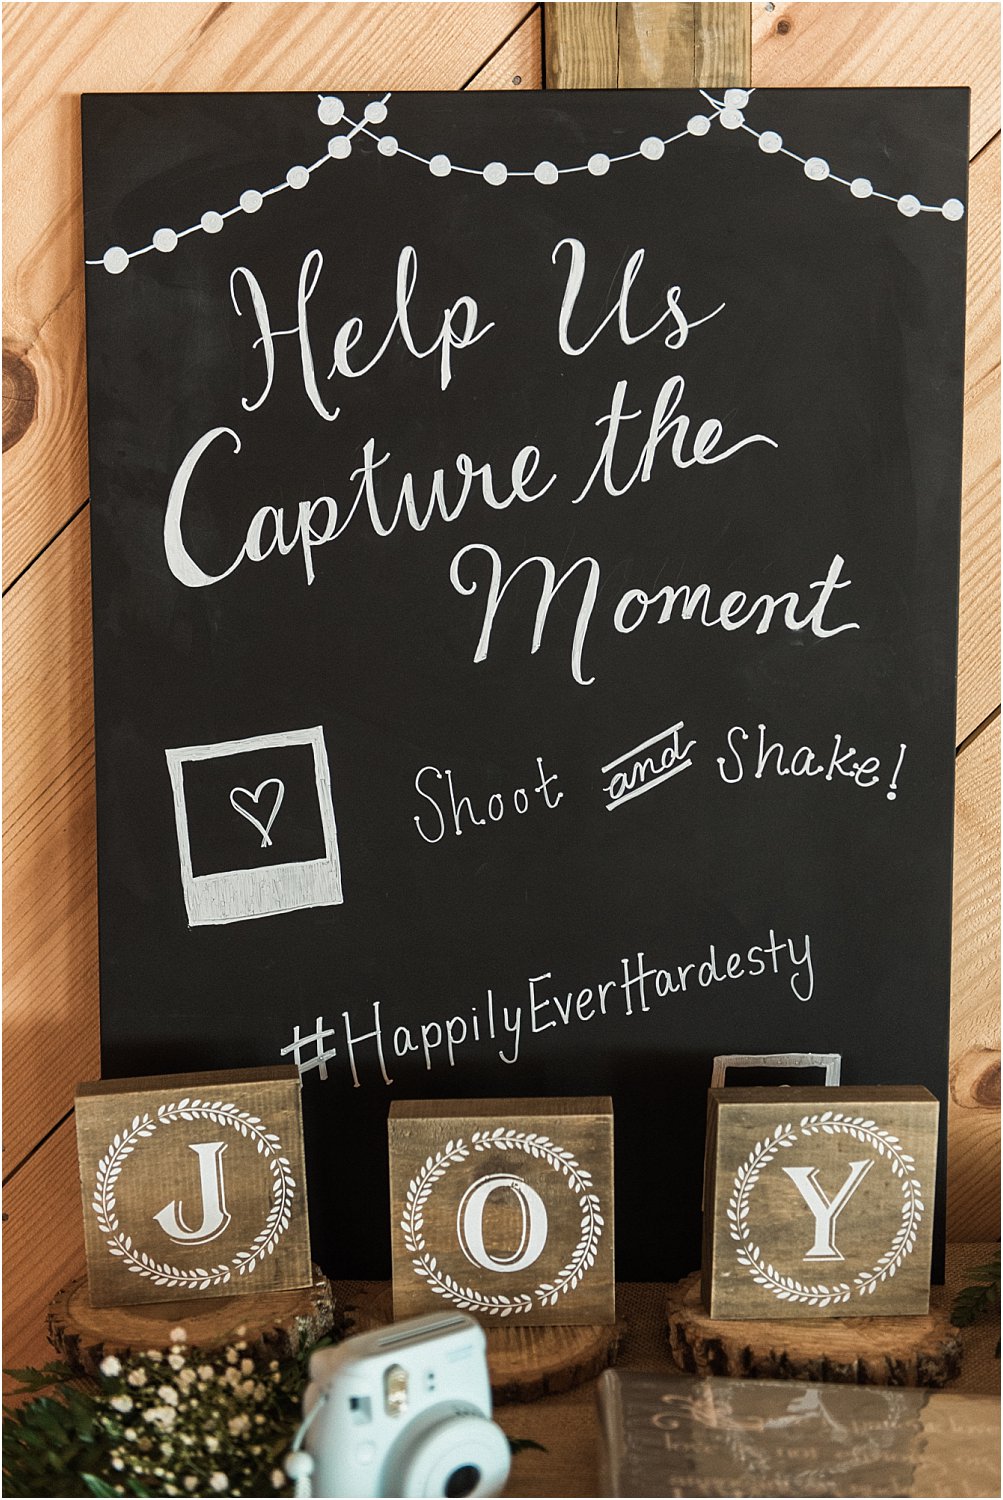 Help Us
Capture the
Moment
Shoot and Shake!
#HappilyEverHardesty
J O Y